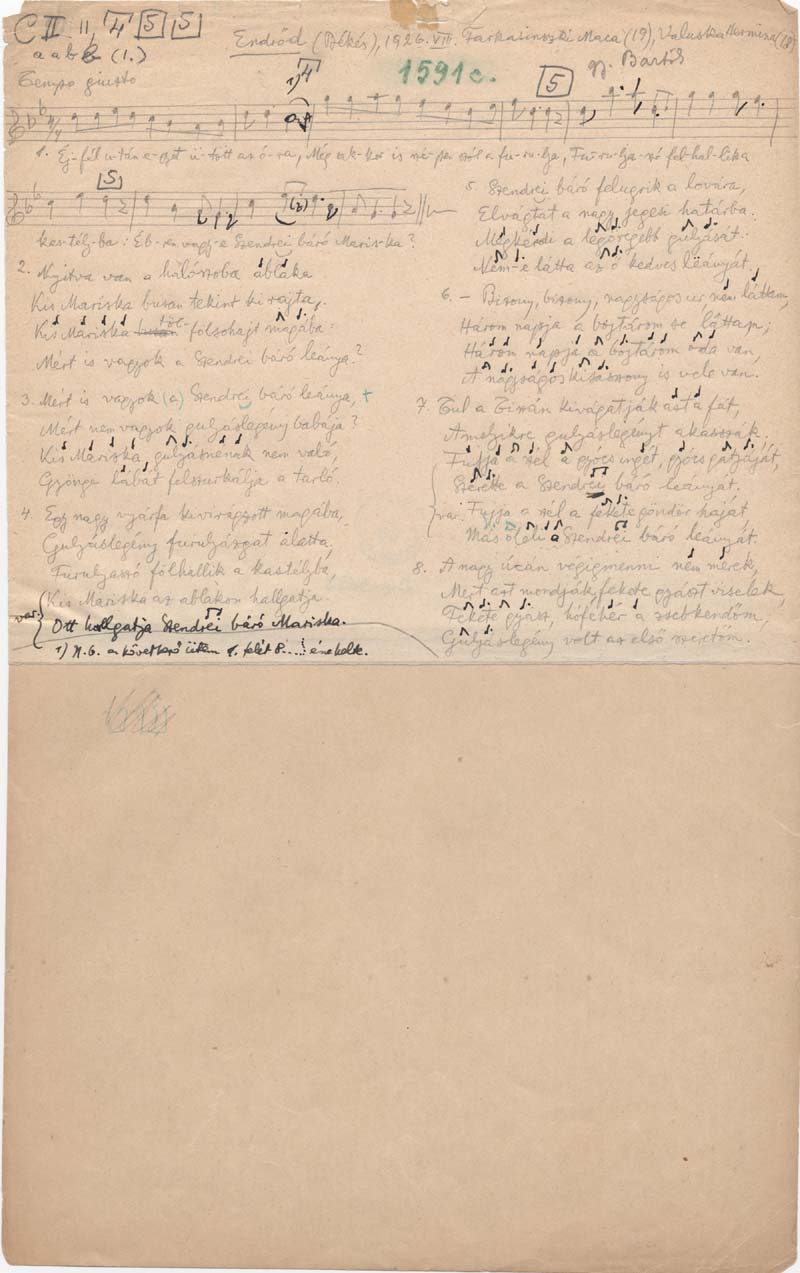 C II. 11, 4 5 5
a a b b (1.)
Endrőd (Békés), 1926. VIII. Farkasinszki Maca (19), Valuska Hermina (18)
gy. Bartók
1591c.
Tempo giusto
1) 4
5
1. Éj-fél u-tán e-gyet ü-tött az ó-ra, Még ak-kor is szé-pen szól a fu-ru-lya, Fu-ru-lya-szó föl-hal-lik a
5
kas-tély-ba: Éb-ren vagy-e Szendrei báró Maris-ka?
2. Nyitva van a hálószoba ablaka
Kis Mariska busan tekint ki rajta,
Kis Mariska föl-fölsohajt magába:
Mért is vagyok a Szendrei báró leánya?
3. Mért is vagyok (a) Szendrei báró leánya, +
Mért nem vagyok gulyáslegény babája?
Kis Mariska, gulyásnénak nem való,
Gyönge lábát felszurkálja a tarló.
4. Egy nagy nyárfa kivirágzott magába,
Gulyáslegény furulyázgat alatta.
Furulyaszó fölhallik a kastélyba,
Kis Mariska az ablakon hallgatja.
var. Ott hallgatja Szendrei báró Mariska.
1) N.B. a következő ütem 1. felét 8.... énekelte.
5. Szendrei báró felugrik a lovára,
Elvágtat a nagy jegesi határba.
Megkérdi a legöregebb gulyását:
Nem-e látta az ő kedves leányát.
6. – Bizony, bizony, nagyságos ur nem láttam,
Három napja a bojtárom se láttam;
Három napja a bojtárom oda van,
A nagyságos kisasszony is vele van.
7. Tul a Tiszán kivágatják azt a fát,
Amelyikre gulyáslegényt akasszák.
Fujja a szél a gyócs ingét, gyócs gatyáját,
Szerette a Szendrei báró leányát.
var. Fujja a szél a fekete göndör haját,
Más öleli a Szendrei báró leányát.
8. A nagy úcán végigmenni nem merek,
Mert azt mondják, fekete gyászt viselek,
Fekete gyász, hófehér a zsebkendőm,
Gulyáslegény volt az első szeretőm.